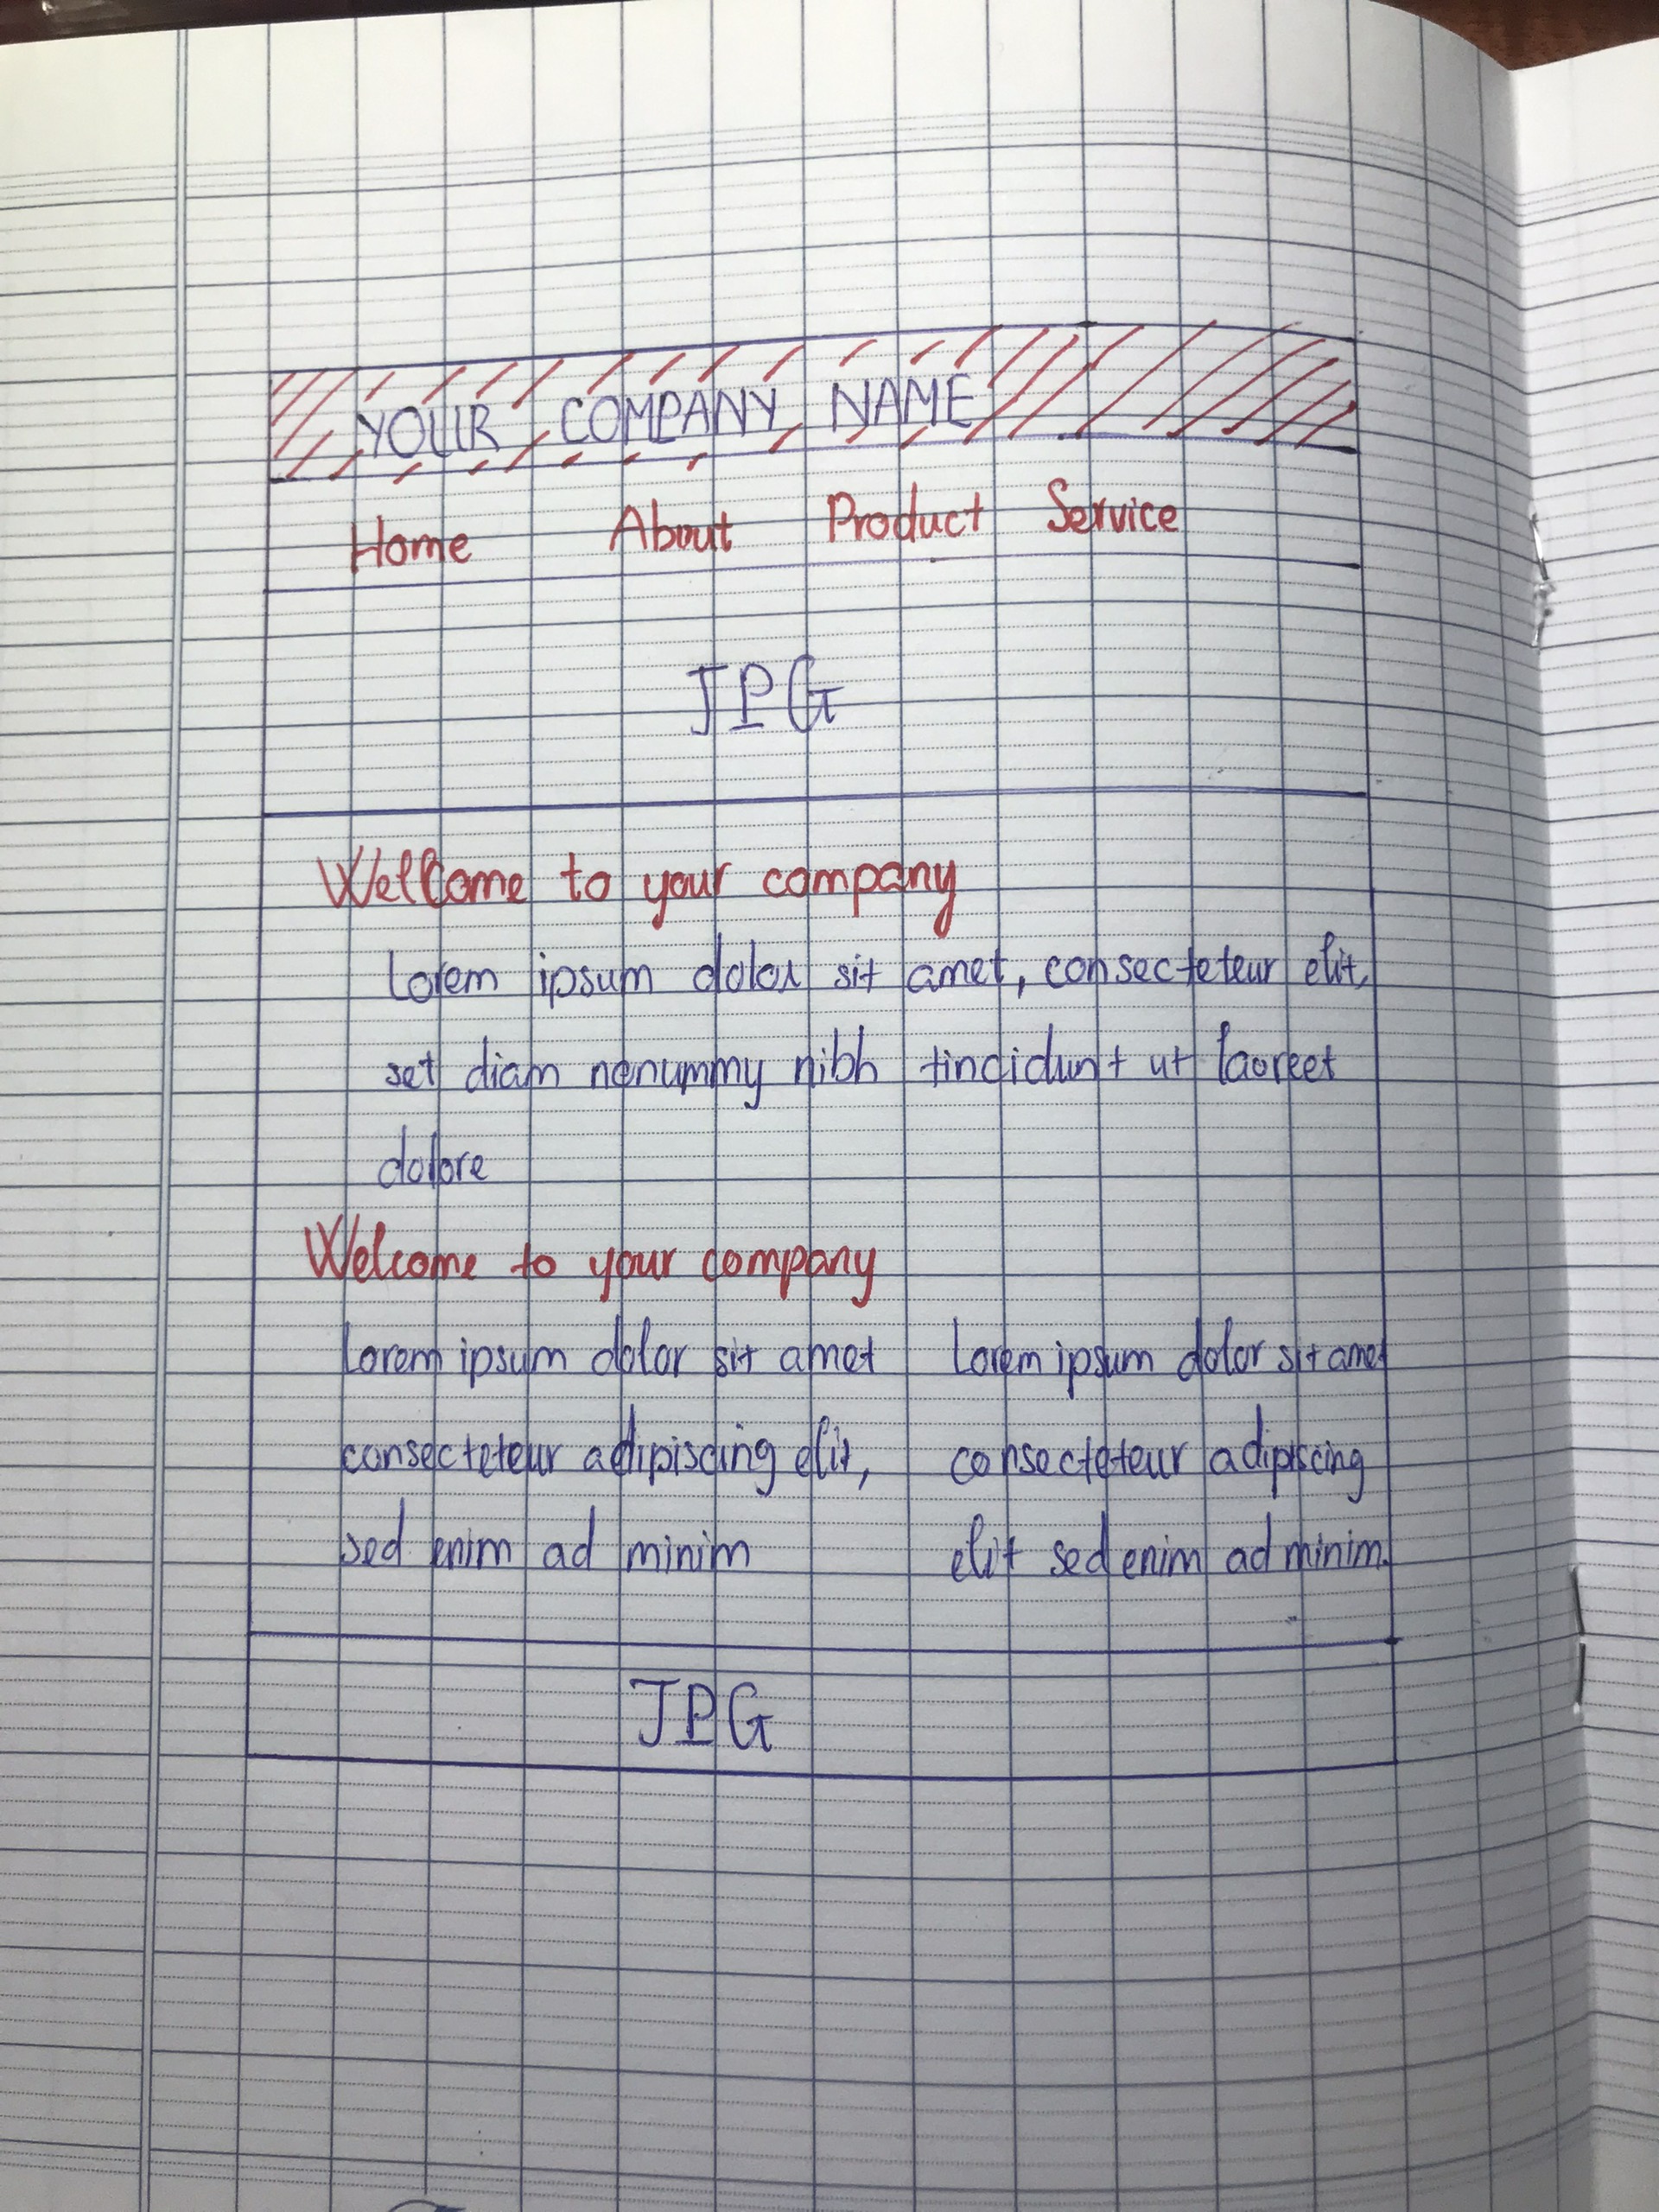 YOUR COMPANY NAME
Home About Product Service
JPG
Wellcome to your company
Lorem ipsum dolor sit amet, consecteteur elit,
set diam nonummy nibh tincidunt ut laoreet
dolore
Welcome to your company
Lorem ipsum dolor sit amet
consecteteur adipiscing elit,
sed enim ad minim
Lorem ipsum dolor sit amet
consecteteur adipiscing
elit sed enim ad minim.
JPG